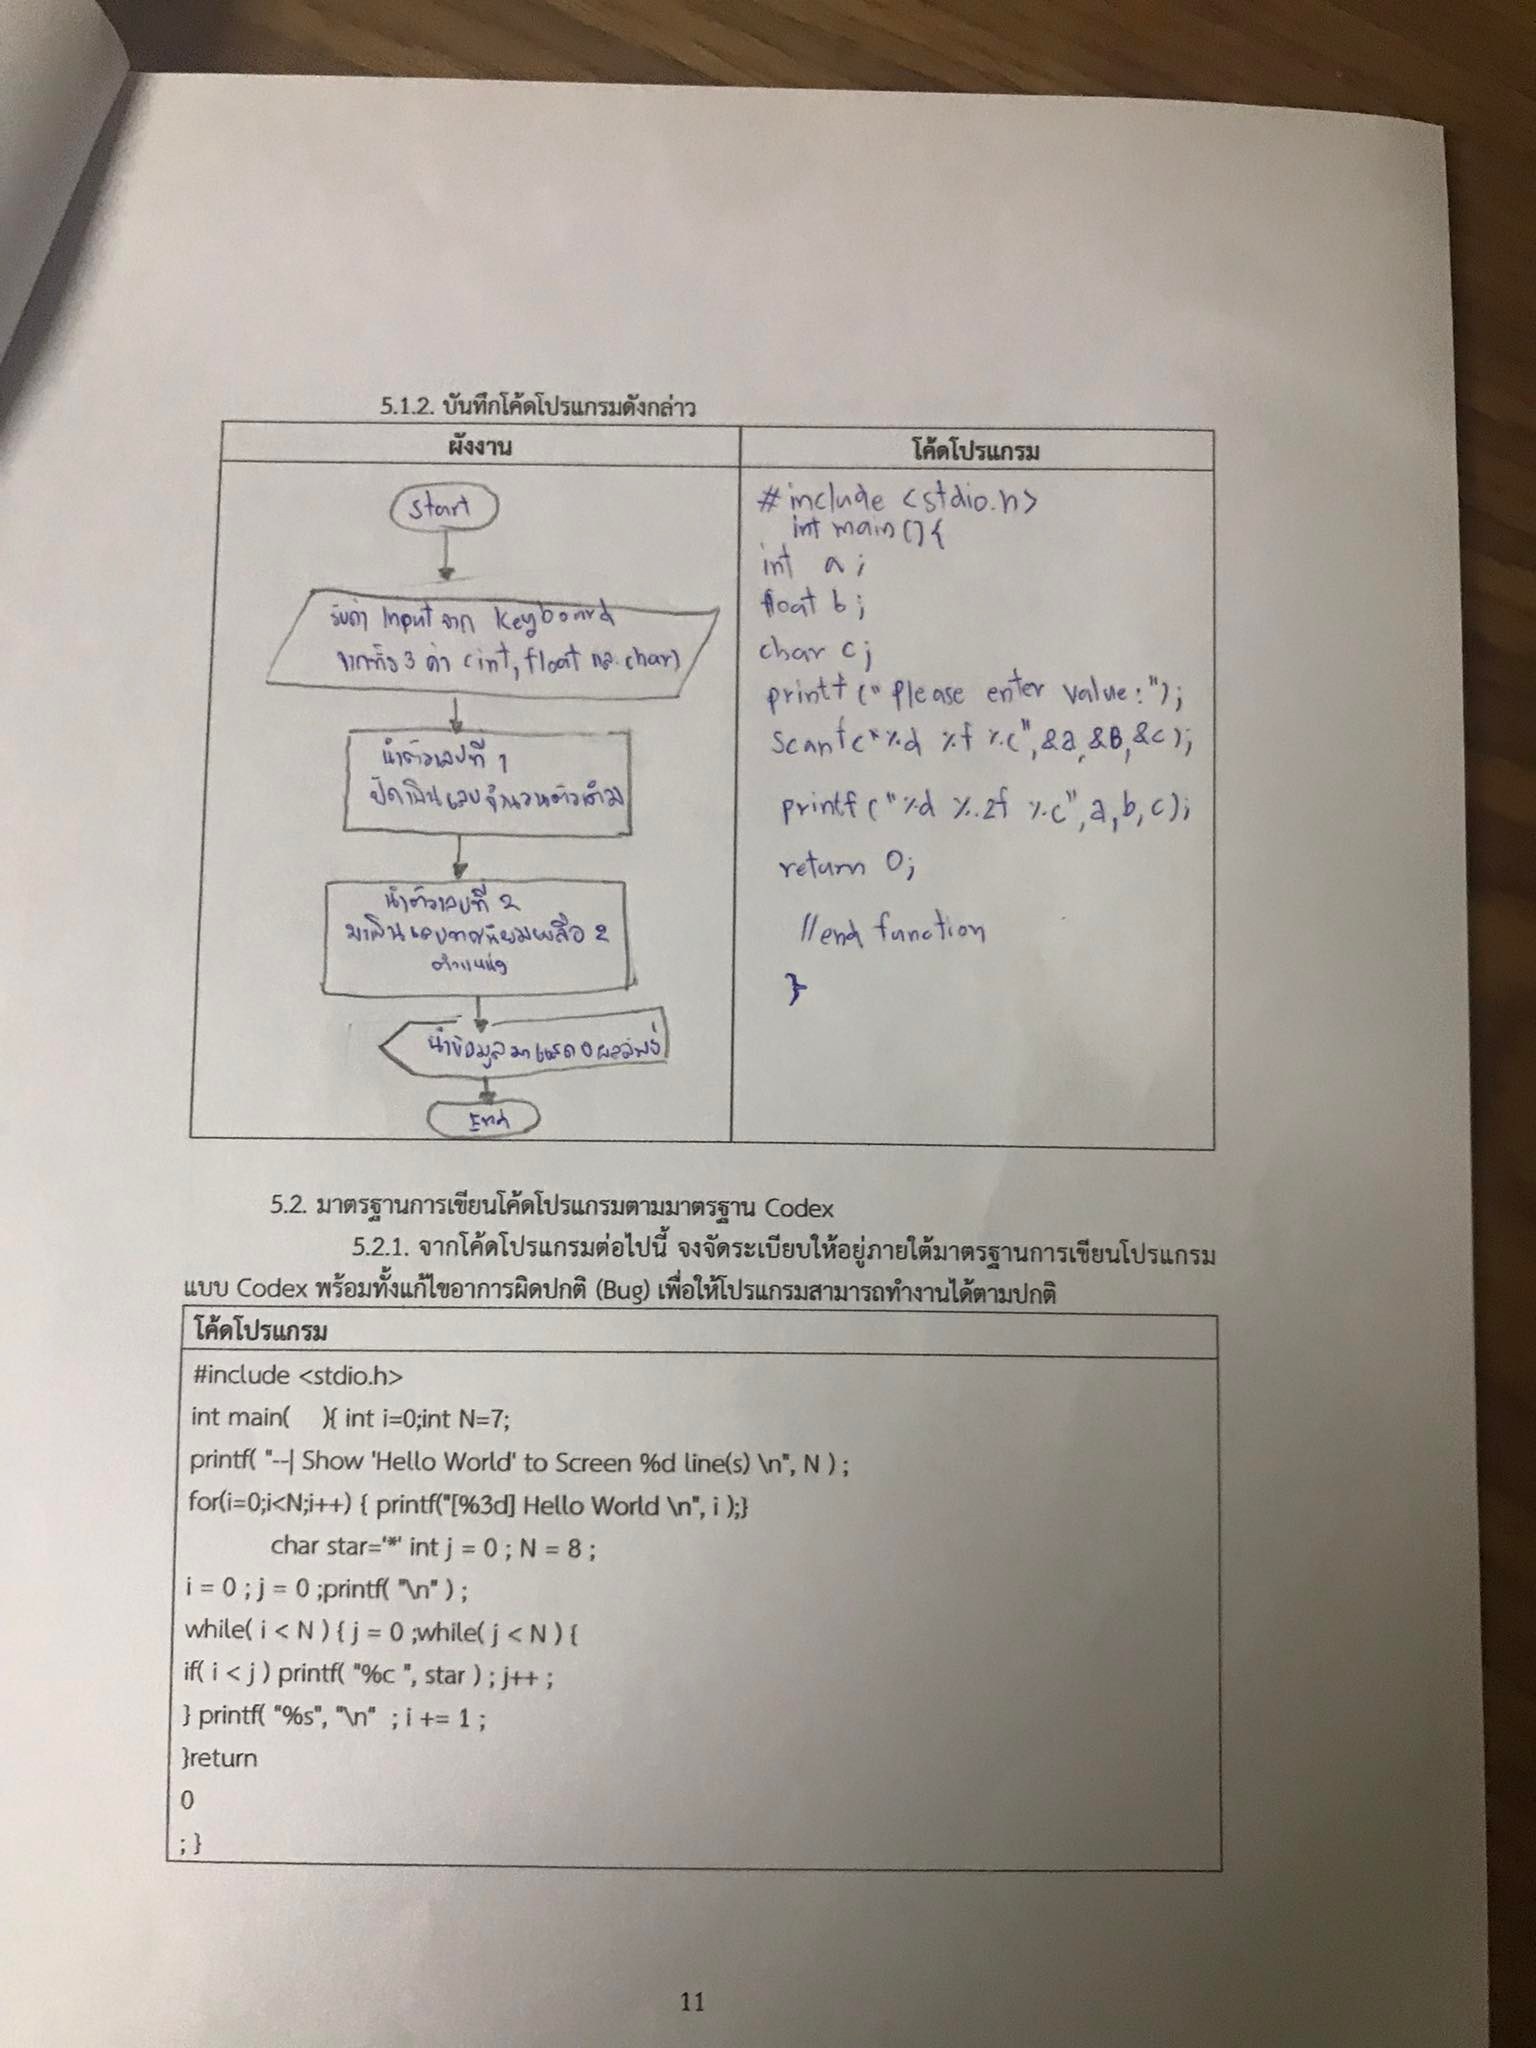 5.1.2. บันทึกโค้ดโปรแกรมดังกล่าว
ผังงาน
โค้ดโปรแกรม
Start
รับค่า Input จาก Keyboard
3 ค่า (int, float และ char)
นำตัวเลขที่ 1
ปัดเป็นเลขจำนวนตัวเต็ม
นำตัวเลขที่ 2
มาเป็นเลขทศนิยมเหลือ 2
ตำแหน่ง
นำข้อมูลมาแสดงผลลัพธ์
End
#include <stdio.h>
int main(){
int a;
float b;
char c;
printf("Please enter value:");
Scanf("%d %f %c",&a,&B,&c);
printf("%d %.2f %c",a,b,c);
return 0;
//end function
}
5.2. มาตรฐานการเขียนโค้ดโปรแกรมตามมาตรฐาน Codex
5.2.1. จากโค้ดโปรแกรมต่อไปนี้ จงจัดระเบียบให้อยู่ภายใต้มาตรฐานการเขียนโปรแกรม
แบบ Codex พร้อมทั้งแก้ไขอาการผิดปกติ (Bug) เพื่อให้โปรแกรมสามารถทำงานได้ตามปกติ
โค้ดโปรแกรม
#include <stdio.h>
int main(    ){ int i=0;int N=7;
printf( "--| Show 'Hello World' to Screen %d line(s) \n", N ) ;
for(i=0;i<N;i++) { printf("[%3d] Hello World \n", i );}
char star='*' int j = 0 ; N = 8 ;
i = 0 ; j = 0 ;printf( "\n" ) ;
while( i < N ) { j = 0 ;while( j < N ) {
if( i < j ) printf( "%c ", star ) ; j++ ;
} printf( "%s", "\n"  ; i += 1 ;
}return
0
; }
11